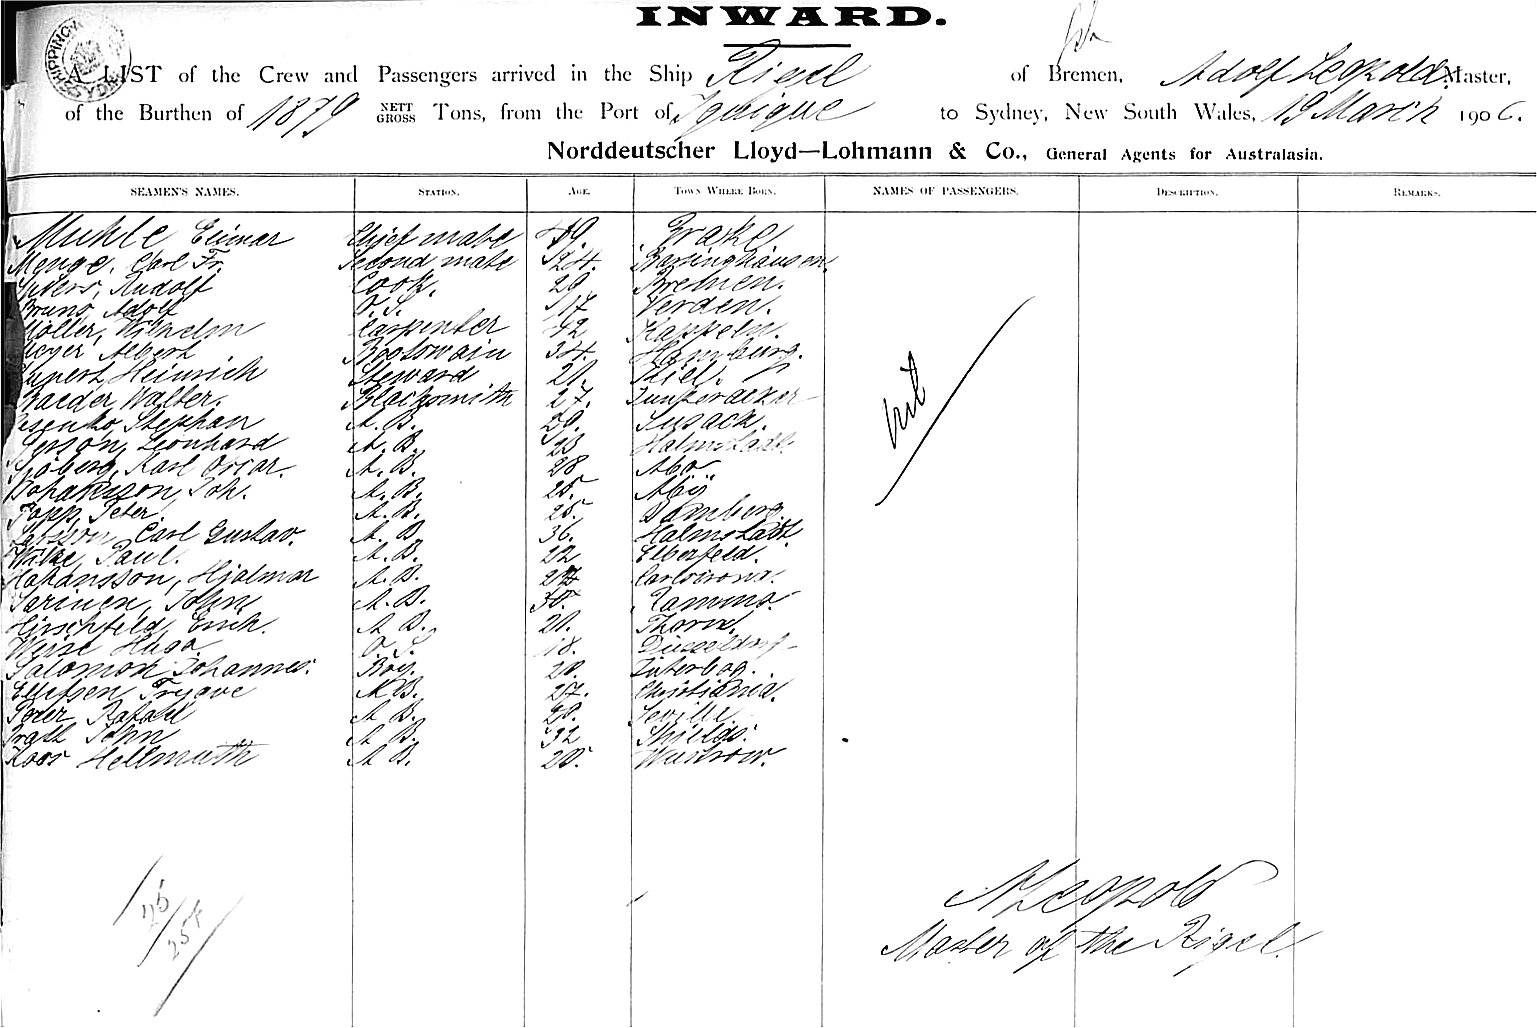 INWARD.
SHIPPING SYDNEY
A LIST of the Crew and Passengers arrived in the Ship Rigel of Bremen, Adolf Leopold Master,
of the Burthen of 1879 NETT GROSS Tons, from the Port of Iquique to Sydney, New South Wales, 19 March 1906.
Norddeutscher Lloyd—Lohmann & Co., General Agents for Australasia.
SEAMEN'S NAMES. STATION. AGE. TOWN WHERE BORN. NAMES OF PASSENGERS. DESCRIPTION. REMARKS.
Muhle Elimar Chief mate 49. Brake
Menge, Carl Fr. Second mate 24. Barsinghausen.
Rudolf Cook. 29 Bremen.
Bruns, Adolf O.S. 17 Verden.
Möller, Wilhelm Carpenter 42 Kappeln.
Meyer Albert Bootswain 34. Hamburg.
Heinrich Steward 21. Kiel.
Walter. Blacksmith 27.
Stephan A.B. 29. Susack.
Leonhard A.B. 23 Halmstadt.
Sjöberg, Karl Oscar. A.B. 28 Abo
Johansson, Joh. A.B. 25.
Popp, Peter A.B. 25. Bamberg
Larsson, Carl Gustav. A.B. 36. Halmstadt.
Wilke, Paul. A.B. 22 Elberfeld.
Johansson, Hjalmar A.B. Carlscrona.
Sarinen, John A.B. 30. Raumo
Hirschfeld, Erich. A.B. 21. Thorn.
Weise Hugo O.S. 18. Düsseldorf
Salomon Johannes. Boy. 20. Jüterbog.
Ellefsen Trygve A.B. 27. Christiania.
Rafael A.B. 20. Seville.
John A.B. 32 Shields.
Koos Hellmuth A.B. 20. Wustrow.
nil
25
A Leopold
Master of the Rigel.